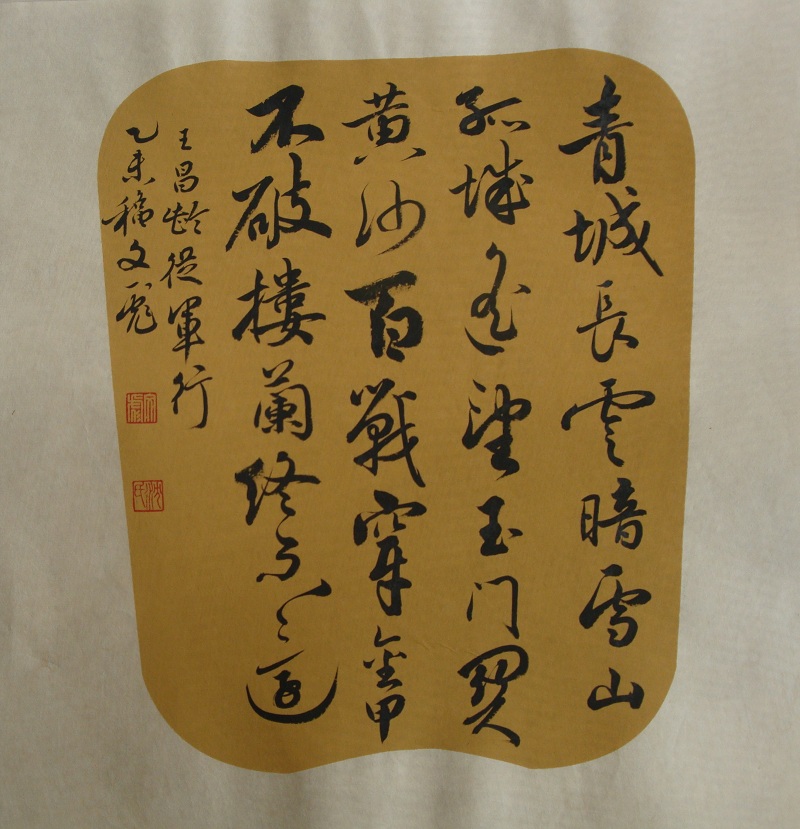 青城長雲暗雪山
孤城遙望玉门關
黄沙百戰穿金甲
不破樓蘭終不還
王昌齡從軍行
乙未文彪